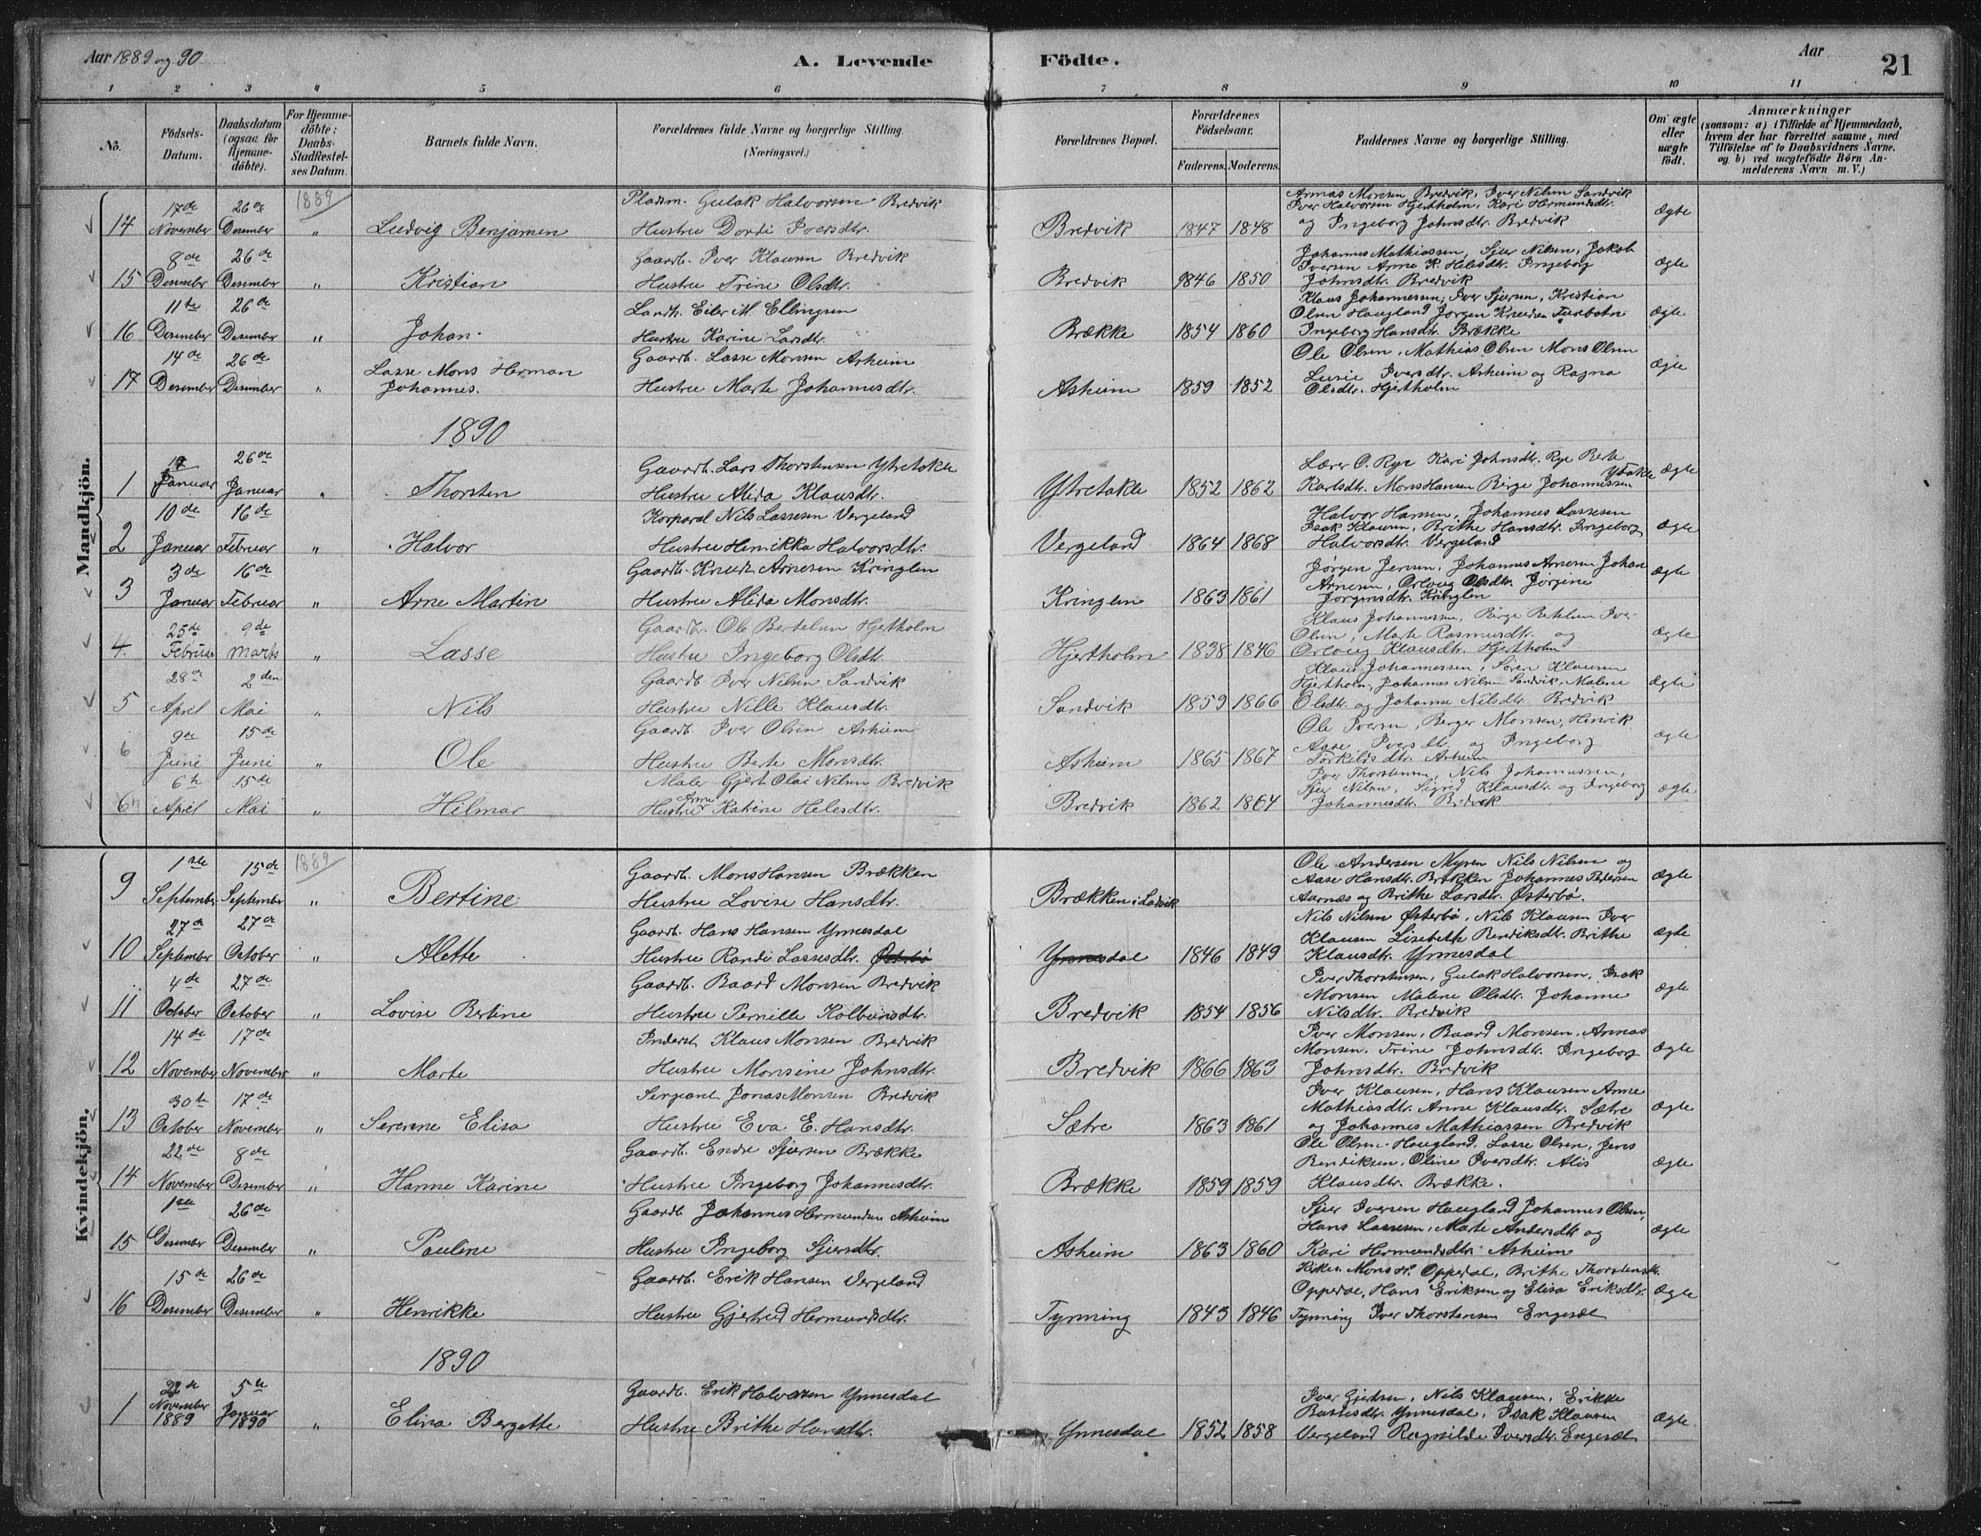 Aar 1889 og 90
A. Levende Födte.
Aar
21
1 2 3 4 5 6 7 8 9 10 11
No.
Födsels-Datum.
Daabsdatum (ogsaa for Hjemme-döbte).
For Hjemme-döbte; Daabs-Stadfestel-ses Datum.
Barnets fulde Navn.
Forældrenes fulde Navne og borgerlige Stilling. (Næringsvei.)
Forældrenes Bopæl.
Forældrenes Födselsaar.
Faderens. Moderens.
Faddernes Navne og borgerlige Stilling.
Om ægte eller uægte födt.
Anmærkninger
(saasom: a) i Tilfælde af Hjemmedaab, hvem der har forrettet samme, med Tilföielse af to Daabsvidners Navne. og b) ved uægtefödte Börn An-melderens Navn m. V.)
Mandkjön.
1889
14 17de November 26de Desember " Ludvig Benjamen
Pladsm. Gulak Halvorsen Bredvik
Hustru Dordi Iversdtr.
Bredvik 1847 1848
Annas Monsen Bredvik, Iver Nilsen Sandvik
Iver Halvorsen Hjertholm, Kari Hermundsdtr.
og Ingeborg Johnsdtr. Bredvik
Ægte
15 8de Desember 26de Desember " Kristian
Gaardb. Iver Klausen Bredvik
Hustru Trine Olsdtr.
Bredvik 1846 1850
Johannes Mathiassen, Sjur Nilsen, Jakob
Iversen Anne K. Helesdtr. Ingeborg
Johnsdtr. Bredvik
Ægte
16 11te Desember 26de Desember " Johan.
Landh. Eiler M. Ellingsen
Hustru Karine Larsdtr.
Brække 1854 1860
Klaus Johannessen, Iver Sjursen, Kristian
Olsen Haugland Jørgen Knudsen
Ingeborg Hansdtr. Brække
Ægte
17 14de Desember 26de Desember " Lasse Mons Herman
Johannes.
Gaardb. Lasse Monsen Asheim
Hustru Marte Johannesdtr.
Asheim 1859 1852
Ole Olsen, Mathias Olsen Mons Olsen
Lusie Iversdtr. Asheim og Ragna
Olsdtr. Hjertholm
Ægte
1890
1 Januar 26de Januar " Thorsten
Gaardb. Lars Thorstensen Ytretakle
Hustru Alida Klausdtr.
Ytretakle 1852 1862
Lærer O. Rye Kari Johnsdtr. Rye Berta
Karlsdtr. Mons Hansen Birge Johannessen Ytretakle
Ægte
2 10de Januar 16de Februar " Halvor
Korporal Nils Lassesen Vergeland
Hustru Hinrikka Halvorsdtr.
Vergeland 1864 1868
Halvor Hansen, Johannes Lassesen
Isak Klausen, Brithe Hansdtr. Ingeborg
Halvorsdtr. Vergeland
Ægte
3 3de Januar 16de Februar " Arne Martin
Gaardb. Knudt Arnesen Kringlen
Hustru Alida Monsdtr.
Kringlen 1863 1861
Jørgen Jensen, Johannes Arnesen Johan
Arnesen, Orloug Olsdtr. Jørgine
Jørginsdtr. Kringlen
Ægte
4. 25de Februar 9de Marts " Lasse
Gaardb. Ole Bertelsen Hjertholm
Hustru Ingeborg Olsdtr.
Hjertholm 1838 1846
Klaus Johannessen, Birge Bertelsen Iver
Olsen, Marte Rasmusdtr. og
Orloug Klausdtr. Hjertholm
Ægte
5 28de April 2den Mai " Nils
Gaardb. Iver Nilsen Sandvik
Hustru Nille Klausdtr.
Sandvik 1859 1866
Klaus Johannessen, Søren Klausen
Hjertholm, Johannes Nilsen Sandvik, Malene
Olsdtr. og Johanne Nilsdtr. Bredvik
Ægte
6 9de Juni 15de Juni " Ole
Gaardb. Iver Olsen Asheim
Hustru Berte Monsdtr.
Asheim 1865 1867
Ole Iversen, Berger Monsen,
Aase Iversdtr. og Ingeborg
Torkeldsdtr. Asheim
Ægte
6 6te April 15de Mai " Hilmar
Maler Gjert Olai Nilsen Bredvik
Hustru Anne Katrine Helesdtr.
Bredvik 1862 1864
Iver Thorstensen, Nils Johannessen,
Sjur Nilsen, Sigrid Klausdtr. og Ingeborg
Johannesdtr. Bredvik
Ægte
Kvindekjön.
1889
9 1ste September 15de September " Bertine
Gaardb. Mons Hansen Brækken
Hustru Lovise Hansdtr.
Brækken i Ladvik
Ole Andersen Myren Nils Nilsen og
Aase Hansdtr. Brækken Johannes Petersen
Aarnæs og Brithe Larsdtr. Østerbø.
Ægte
10 27de September 27de October " Alette
Gaardb. Hans Hansen Ynnesdal
Hustru Randi Lassesdtr. Østerbø
Ynnesdal 1846 1849
Nils Nilsen Østerbø, Nils Klausen Iver
Klausen Lisebeth Bendiksdtr. Brithe
Klausdtr. Ynnesdal
Ægte
11 4de October 27de October " Lovise Bertine
Gaardb. Baard Monsen Bredvik
Hustru Pernille Kolbeinsdtr.
Bredvik 1854 1856
Iver Thorstensen, Gulak Halvorsen, Isak
Monsen Malene Olsdtr. Johanne
Nilsdtr. Bredvik
Ægte
12 14de November 17de November " Marte
Inderst Klaus Monsen Bredvik
Hustru Monsine Johnsdtr.
Bredvik 1866 1863
Iver Monsen, Baard Monsen, Annas
Monsen, Trine Johnsdtr. Ingeborg
Johnsdtr. Bredvik
Ægte
13 30te October 17de November " Serenne Elisa
Sergeant Jonas Monsen Bredvik
Hustru Eva E. Hansdtr.
Sætre 1863 1861
Iver Klausen, Hans Klausen Anne
Mathiasdtr. Anne Klausdtr. Sætre
og Johannes Mathiassen Bredvik
Ægte
14 22de November 8de Desember " Hanne Karine
Gaardb. Endre Sjursen Brække
Hustru Ingeborg Johannesdtr.
Brække 1859 1859
Ole Olsen Haugland, Lasse Olsen, Jens
Bendiksen, Oline Iversdtr. Alis
Klausdtr. Brække.
Ægte
15 1ste Desember 26de Desember " Pauline
Gaardb. Johannes Hermundsen Asheim
Hustru Ingeborg Sjursdtr.
Asheim 1863 1860
Sjur Iversen Haugland Johannes Olsen,
Hans Lassesen, Marte Andersdtr. og
Kari Hermundsdtr. Asheim
Ægte
16 15de Desember 26de Desember " Henrikke
Gaardb. Erik Hansen Vergeland
Hustru Gjertrud Hermundsdtr.
Tynning 1843 1846
Mons H. Oppedal, Brithe Thorstensdtr.
Oppedal, Hans Eriksen og Elisa Eriksdtr.
Tynning Iver Thorstensen Engesæt
Ægte
1890
1 22de November 1889 5te Januar 1890 " Elisa Bergette
Gaardb. Erik Halvorsen Ynnesdal
Hustru Brithe Hansdtr.
Ynnesdal 1852 1858
Iver Gjertsen, Nils Klausen, Erikke
Ynnesdal, Isak Klausen
Vergeland Ragnilde Iversdtr. Engesæt
Ægte